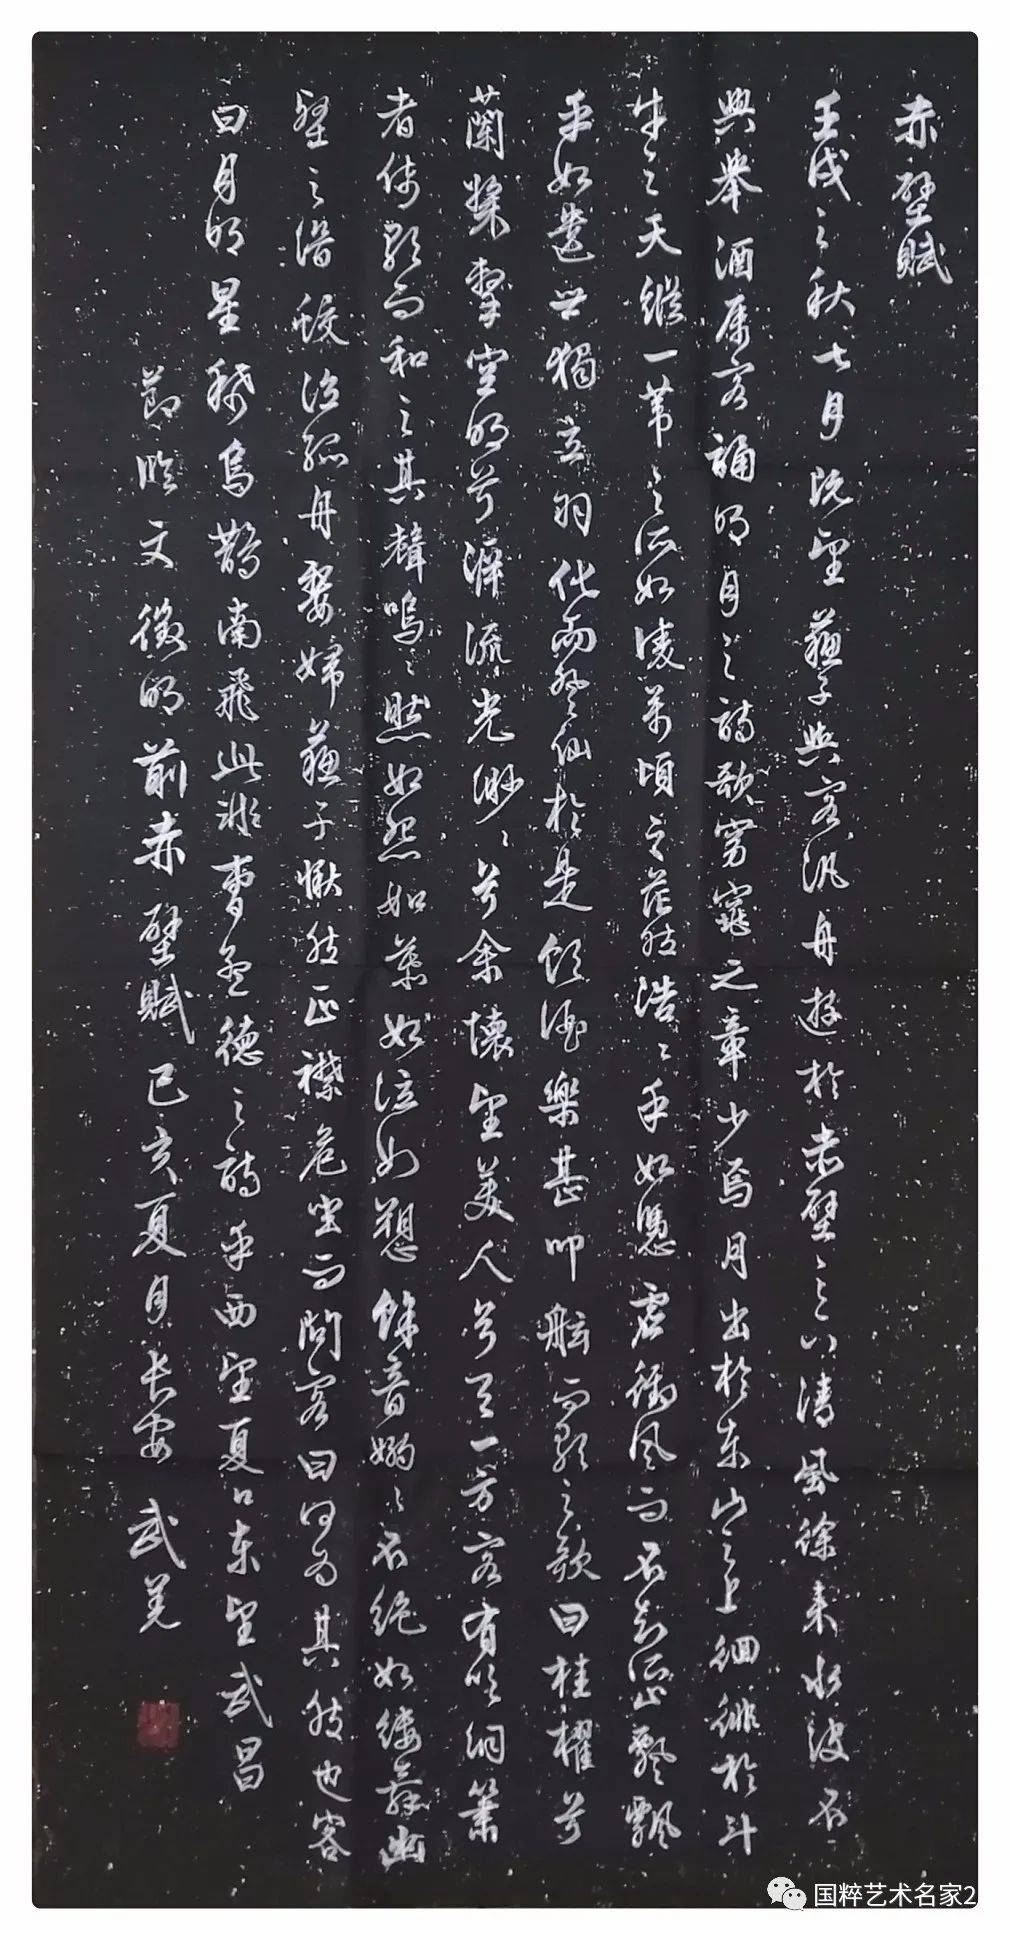 赤壁賦
壬戌之秋七月既望蘇子與客汎舟遊於赤壁之下清風徐来水波不
興舉酒属客誦明月之詩歌窈窕之章少焉月出於東山之上徊徘於斗
牛之天縱一葦之所如凌萬頃之茫然浩〻乎如憑虚御風而不知所止飄飄
乎如遺世獨立羽化而登仙於是飲酒樂甚叩舷而歌之歌曰桂櫂兮
蘭槳擊空明兮泝流光渺〻兮余懷望美人兮天一方客有吹洞簫
者倚歌而和之其聲嗚〻然如怨如慕如泣如愬餘音嫋〻不絶如縷舞幽
壑之潜蛟泣孤舟嫠婦蘇子愀然正襟危坐而問客曰何為其然也客
曰月明星稀烏鵲南飛此非曹孟德之詩乎西望夏口東望武昌
節臨文徵明前赤壁賦己亥夏月長安武羌
国粹艺术名家2